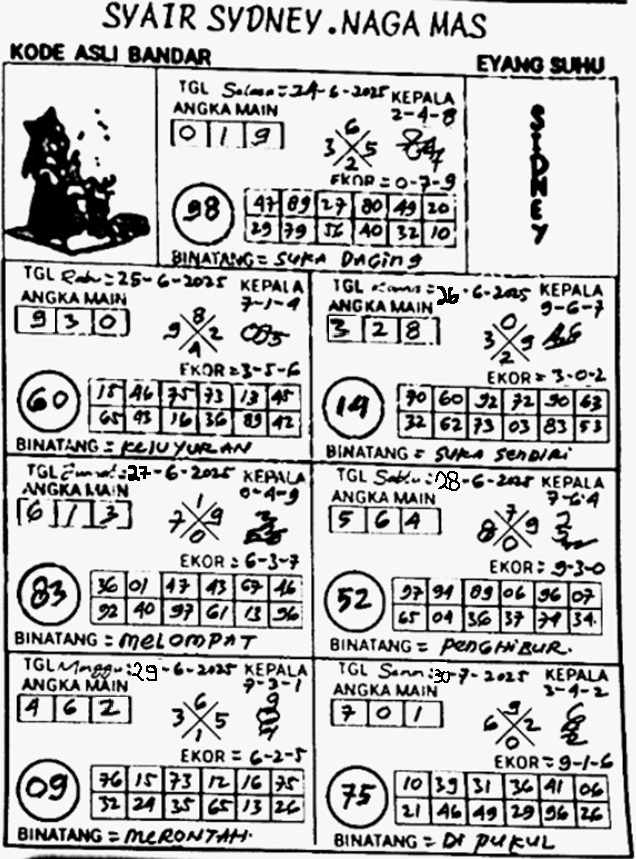 SYAIR SYDNEY.NAGA MAS
KODE ASLI BANDAR
EYANG SUHU
TGL Selasa = 24-6-2025 KEPALA
2-4-8
ANGKA MAIN
0 1 9
6
3 5
2
EKOR = 0-7-9
98
47 89 27 80 49 20
29 79 56 40 32 10
BINATANG = SUKA DAGING
SIDNEY
TGL Rabu : 25-6-2025 KEPALA
7-1-4
ANGKA MAIN
9 3 0
8
9 2
4
EKOR = 3-5-6
60
15 46 75 73 13 45
65 93 16 36 89 42
BINATANG = KELUYURAN
TGL Kamis = 26-6-2025 KEPALA
9-6-7
ANGKA MAIN
3 2 8
0
3 9
2
EKOR = 3-0-2
14
70 60 92 72 90 63
32 62 73 03 83 53
BINATANG = SUKA SENDIRI
TGL Jumat : 27-6-2025 KEPALA
0-4-9
ANGKA MAIN
6 1 3
1
7 9
0
EKOR = 6-3-7
83
36 01 47 43 67 46
92 40 97 61 13 96
BINATANG = MELOMPAT
TGL Sabtu : 28-6-2025 KEPALA
7-6-4
ANGKA MAIN
5 6 4
7
8 9
0
EKOR = 9-3-0
52
97 94 89 06 96 07
65 04 36 37 74 34
BINATANG = PENGHIBUR.
TGL Minggu : 29-6-2025 KEPALA
7-3-1
ANGKA MAIN
4 6 2
6
3 5
1
EKOR = 6-2-5
09
76 15 73 12 16 75
32 24 35 65 13 26
BINATANG = MERONTAH.
TGL Senin : 30-7-2025 KEPALA
3-4-2
ANGKA MAIN
7 0 1
9
6 2
0
EKOR = 9-1-6
75
10 39 31 36 41 06
21 46 49 29 96 26
BINATANG = DI PUKUL